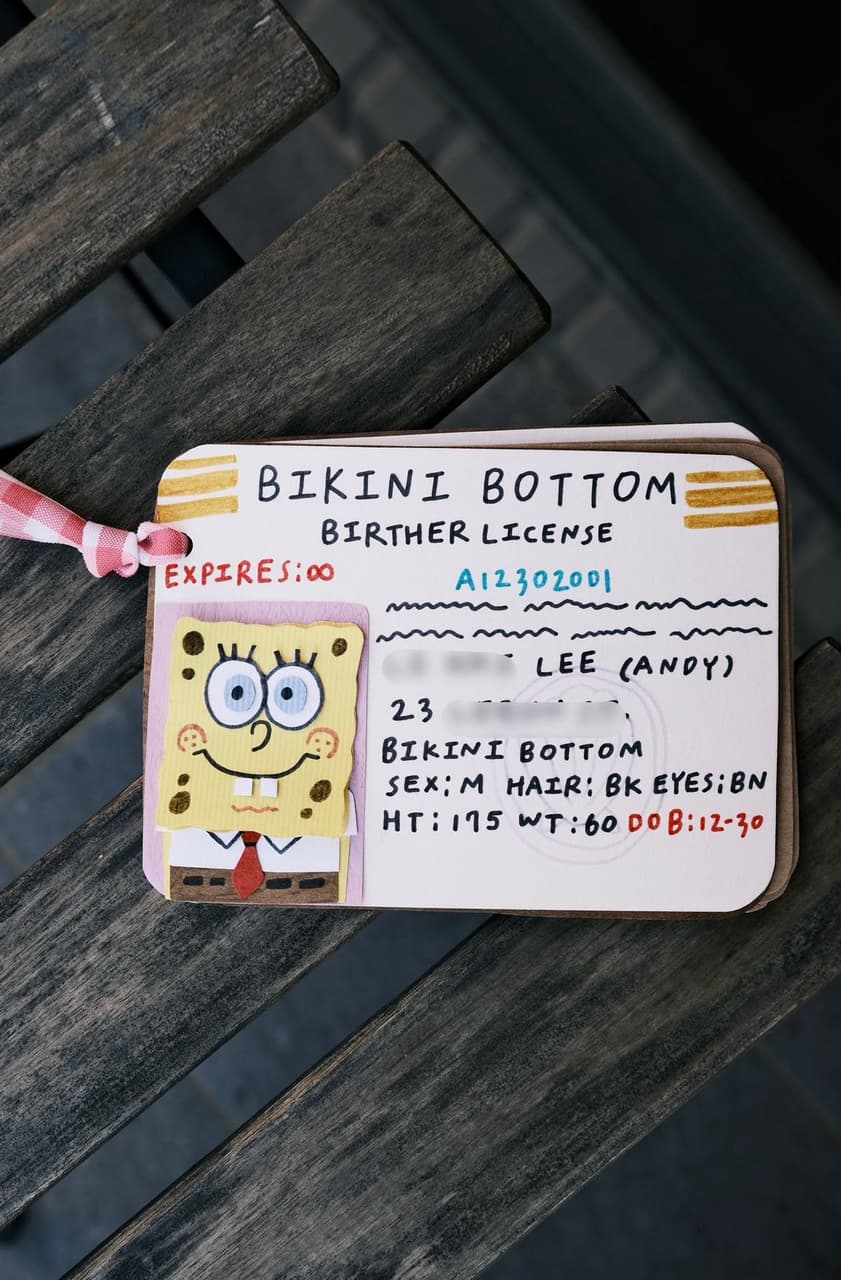 BIKINI BOTTOM
BIRTHER LICENSE
EXPIRES:∞
A12302001
LEE (ANDY)
23
BIKINI BOTTOM
SEX: M HAIR: BK EYES: BN
HT: 175 WT: 60 DOB: 12-30